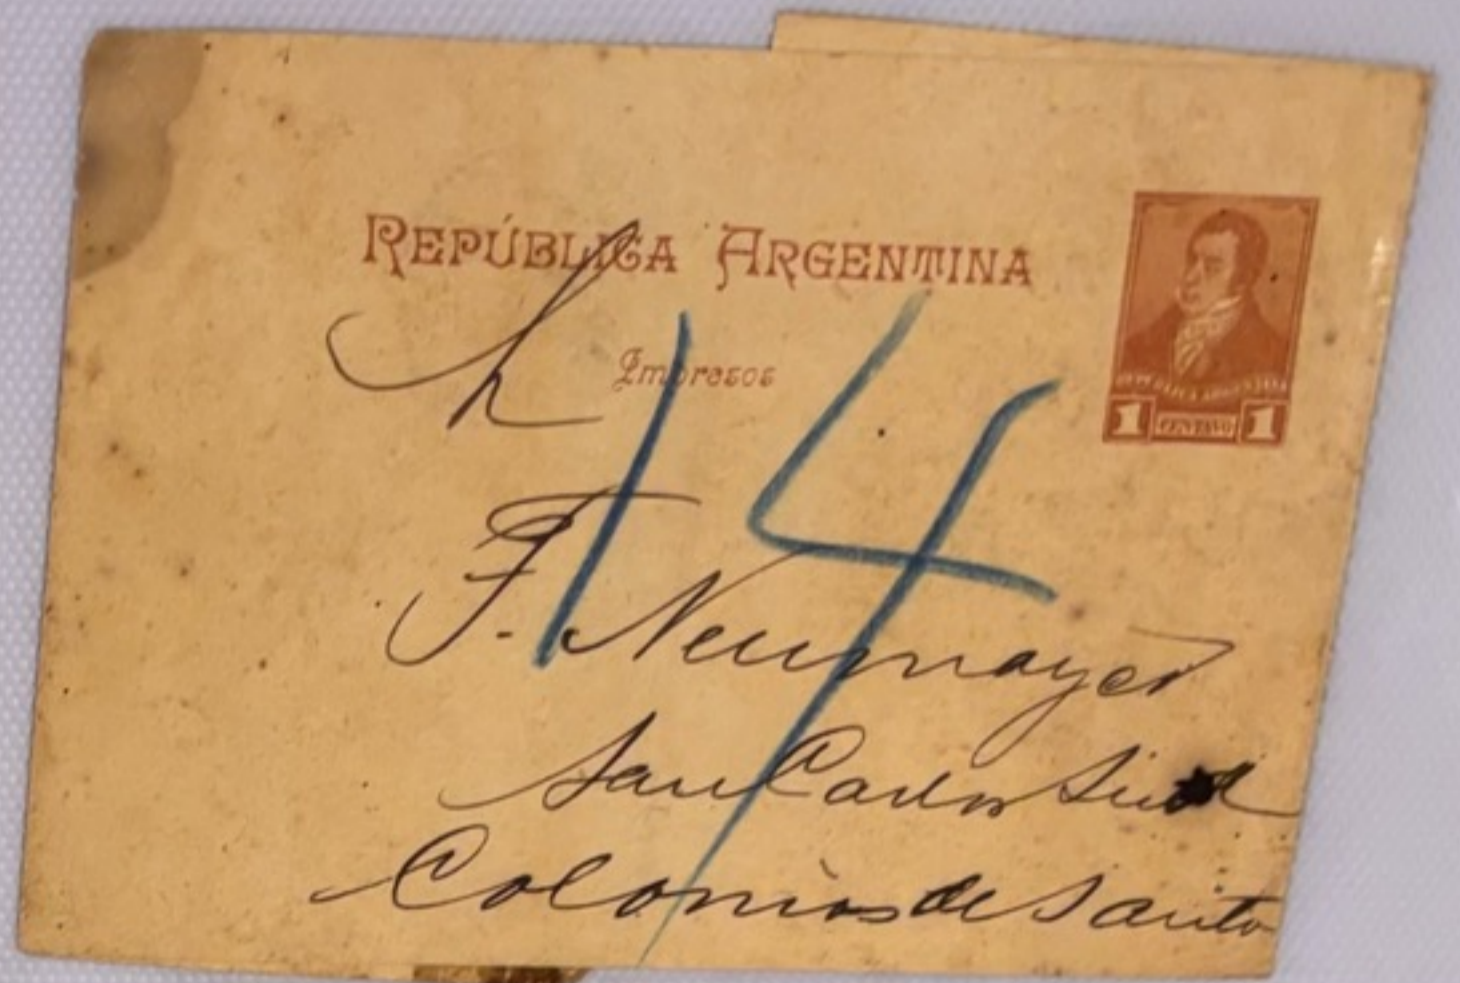 REPÚBLICA ARGENTINA
Impresos
REPUBLICA ARGENTINA
1 CENTAVO 1
14
F. Neumayer
San Carlos Sud
Colonias de Santa